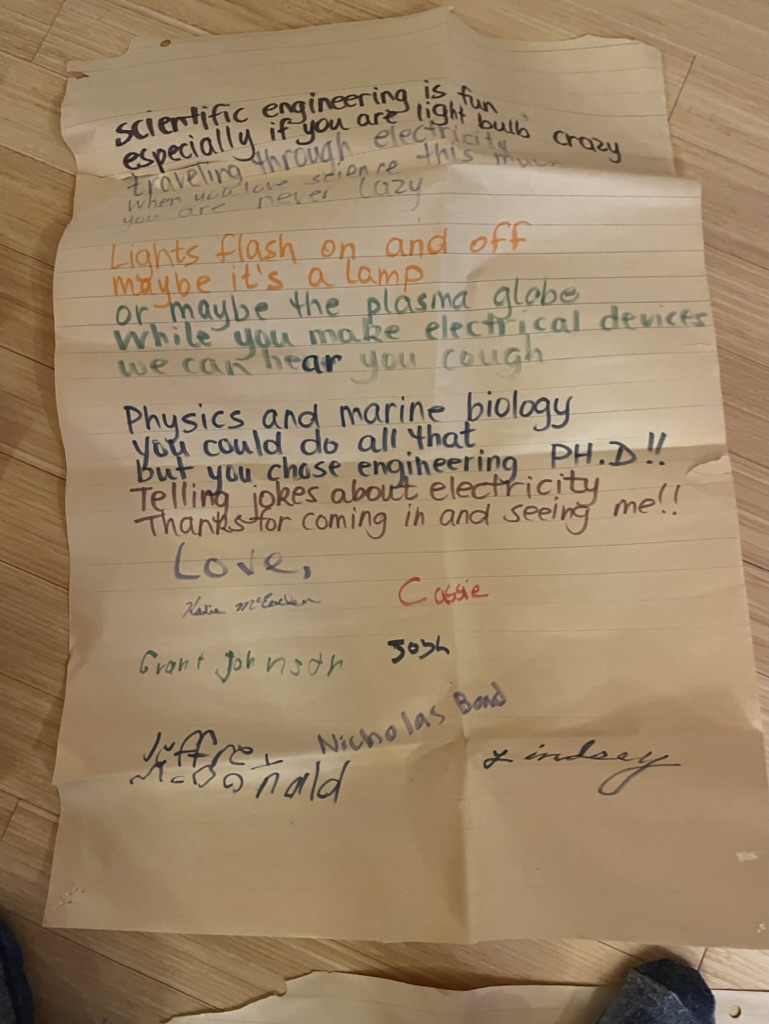 scientific engineering is fun
especially if you are light bulb crazy
traveling through electricity
when you love science this
you are never lazy
Lights flash on and off
maybe it's a lamp
or maybe the plasma globe
while you make electrical devices
we can hear you cough
Physics and marine biology
you could do all that
but you chose engineering PH.D!!
Telling jokes about electricity
Thanks for coming in and seeing me!!
Love,
Katie Cassie
Grant Johnson Josh
Nicholas Bond
Jeffrey Lindsey
McDonald